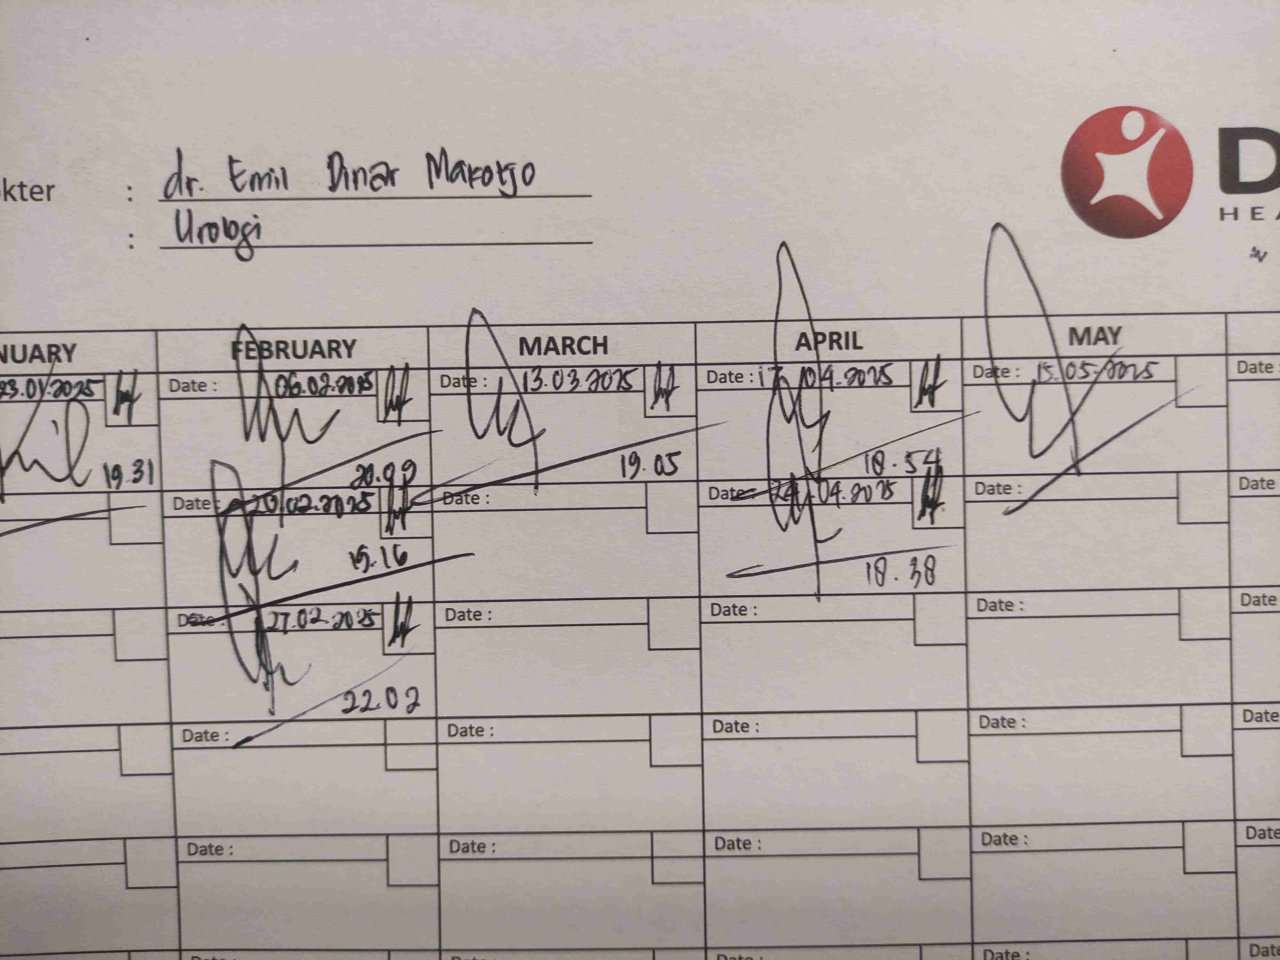 kter : dr. Emil Dinar Makotjo
: Urologi
D
HEA
NUARY FEBRUARY MARCH APRIL MAY
23.01.2025 Date : 06.02.2025 Date : 13.03.2025 Date : 17.04.2025 Date : 15.05.2025 Date
19.31 20.99 19.05 18.54
Date : 20.02.2025 Date : Date : 24.04.2025 Date : Date
15.16 18.38
Date : 27.02.2025 Date : Date : Date : Date
22.02
Date : Date : Date : Date : Date
Date : Date : Date : Date : Date
Date : Date : Date : Date : Dat